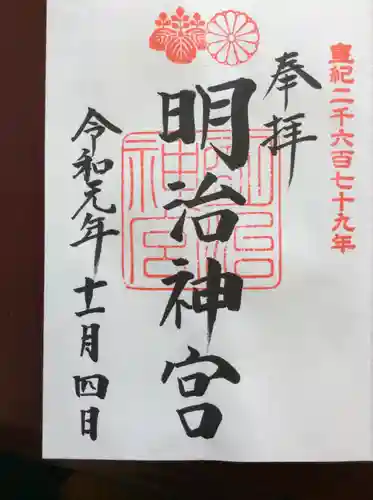 皇紀二千六百七十九年
奉拝
明治神宮
明治神宮
令和元年十一月四日